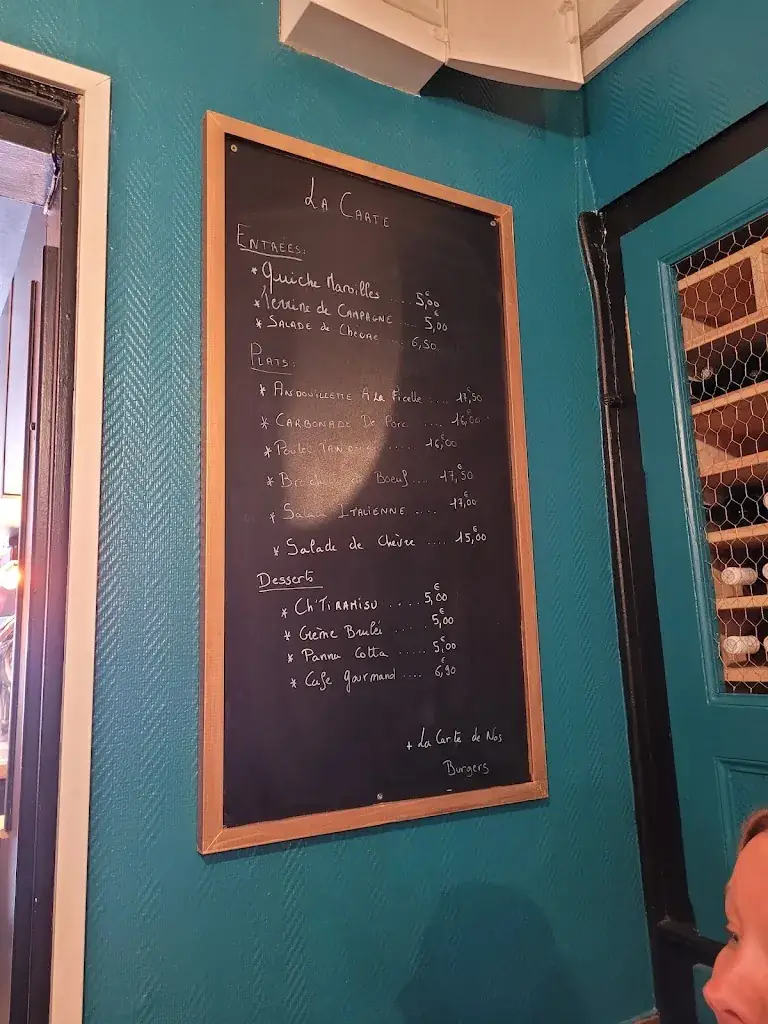 La Carte
Entrées:
* Quiche Maroilles .... 5,00€
* Terrine de Campagne ... 5,00€
* Salade de Chèvre ... 6,50
Plats:
* Andouillette A La Ficelle .... 17,50€
* Carbonade De Porc .... 16,00€
* Poulet ..... 16,00€
* Boeuf .... 17,50€
* Salade Italienne .... 17,00€
* Salade de Chèvre .... 15,00€
Desserts
* Ch'Tiramisu ..... 5,00€
* Crème Brulée .... 5,00€
* Panna Cotta .... 5,00€
* Café Gourmand .... 6,90€
+ La Carte de Nos
Burgers